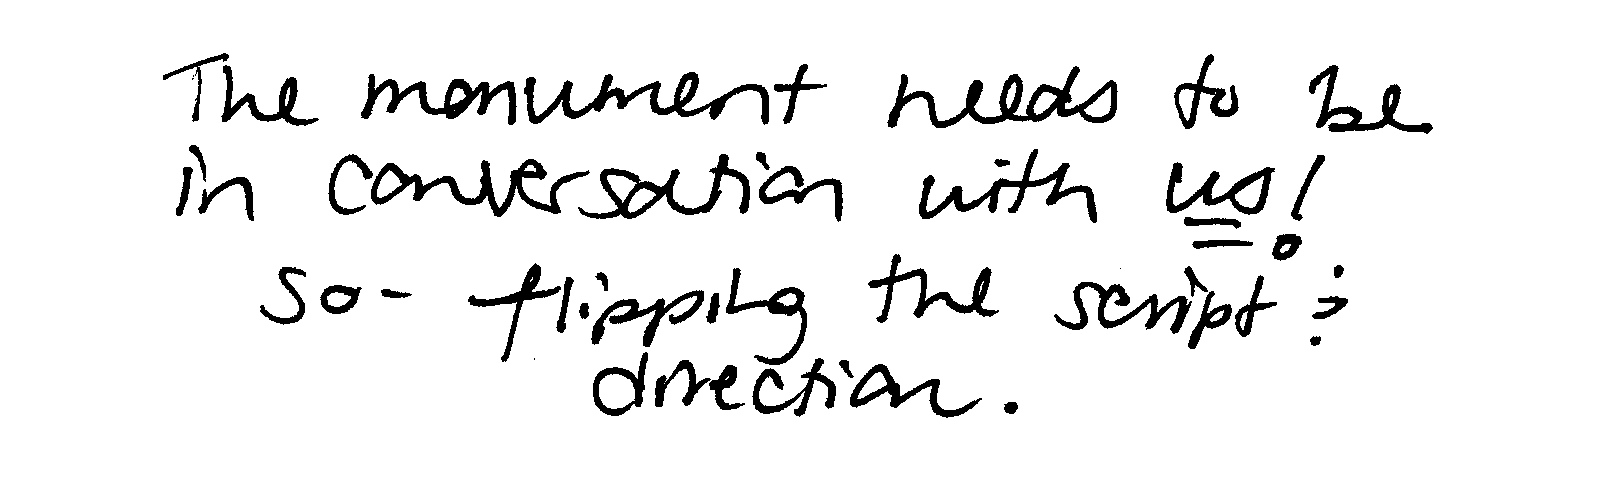 The monument needs to be
in conversation with us!
so - flipping the script :
direction.